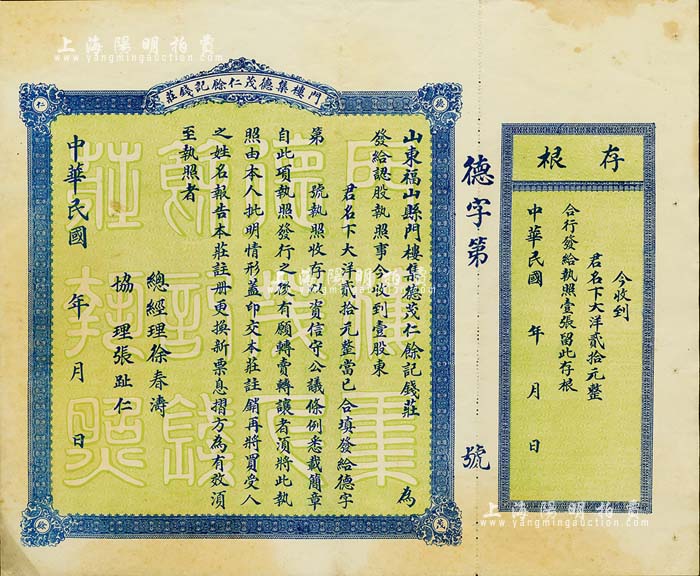 上海陽明拍賣
www.yangmingauction.com
門樓集德茂仁餘記錢莊
德
仁
茂
餘
山東福山縣門樓集德茂仁餘記錢莊 為
發給認股執照事今收到壹股東
君名下大洋貳拾元整當已合填發給德字
第 號執照收存以資信守公議條例悉載簡章
自此項執照發行之後有願轉賣轉讓者須將此執
照由本人批明情形蓋印交本莊註銷再將買受人
之姓名報告本莊註册更換新票息摺方為有效須
至執照者
總經理徐春濤
協理張趾仁
中華民國 年 月 日
德字第 號
存根
今收到
君名下大洋貳拾元整
合行發給執照壹張留此存根
中華民國 年 月 日
上海陽明拍賣
www.yangmingauction.com